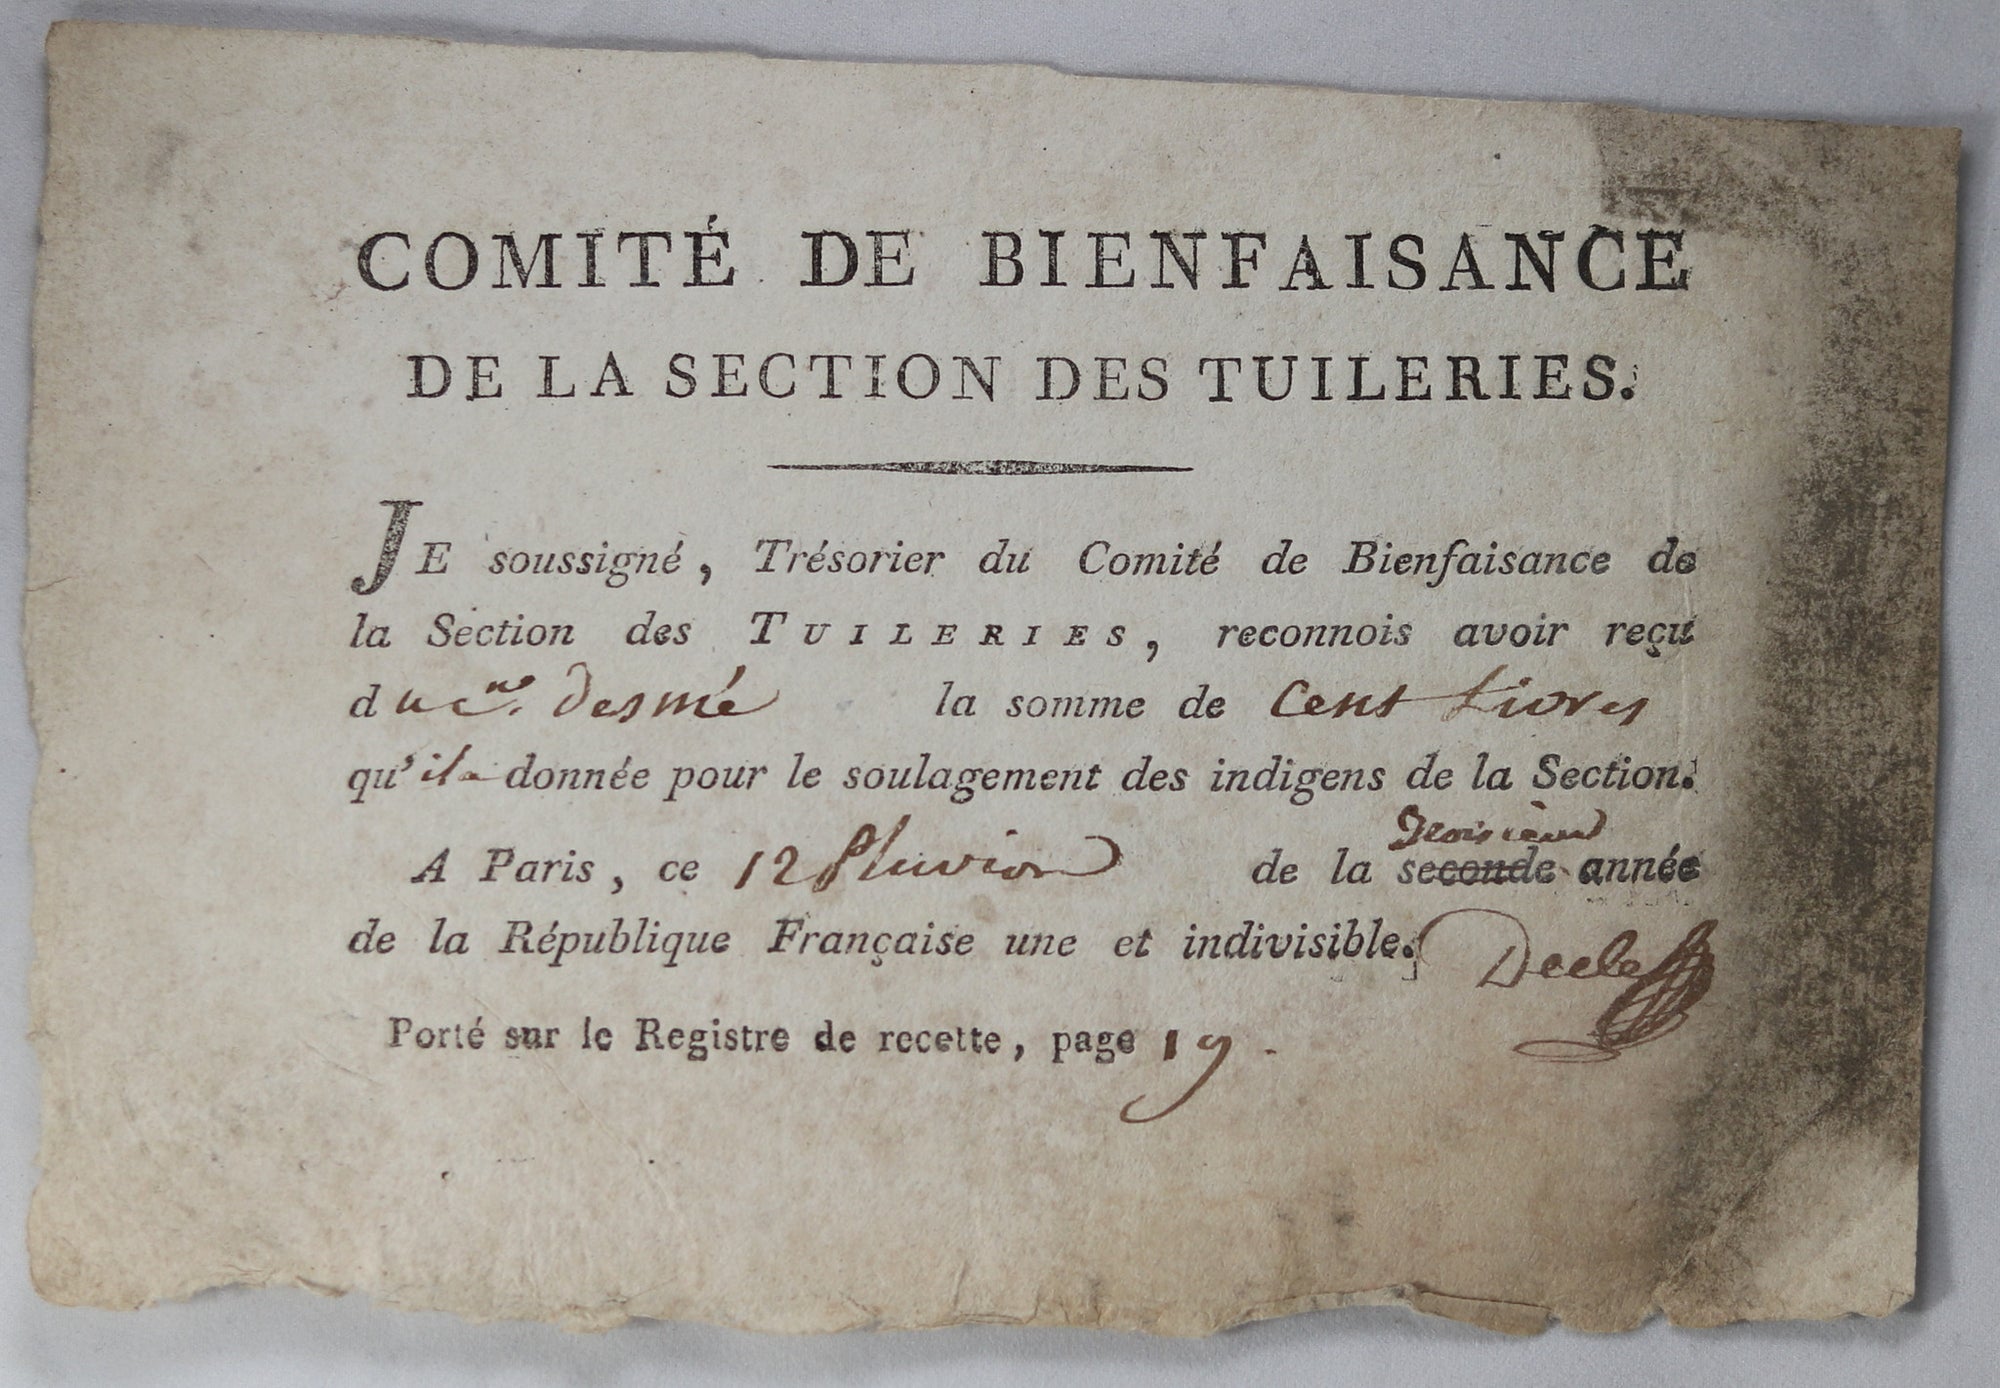 COMITÉ DE BIENFAISANCE
DE LA SECTION DES TUILERIES.
JE soussigné, Trésorier du Comité de Bienfaisance de
la Section des TUILERIES, reconnois avoir reçu
du cen. Desmé la somme de Cent Livres
qu'il a donnée pour le soulagement des indigens de la Section.
troisieme
A Paris, ce 12 Pluviose de la seconde année
de la République Française une et indivisible.
Porté sur le Registre de recette, page 19.